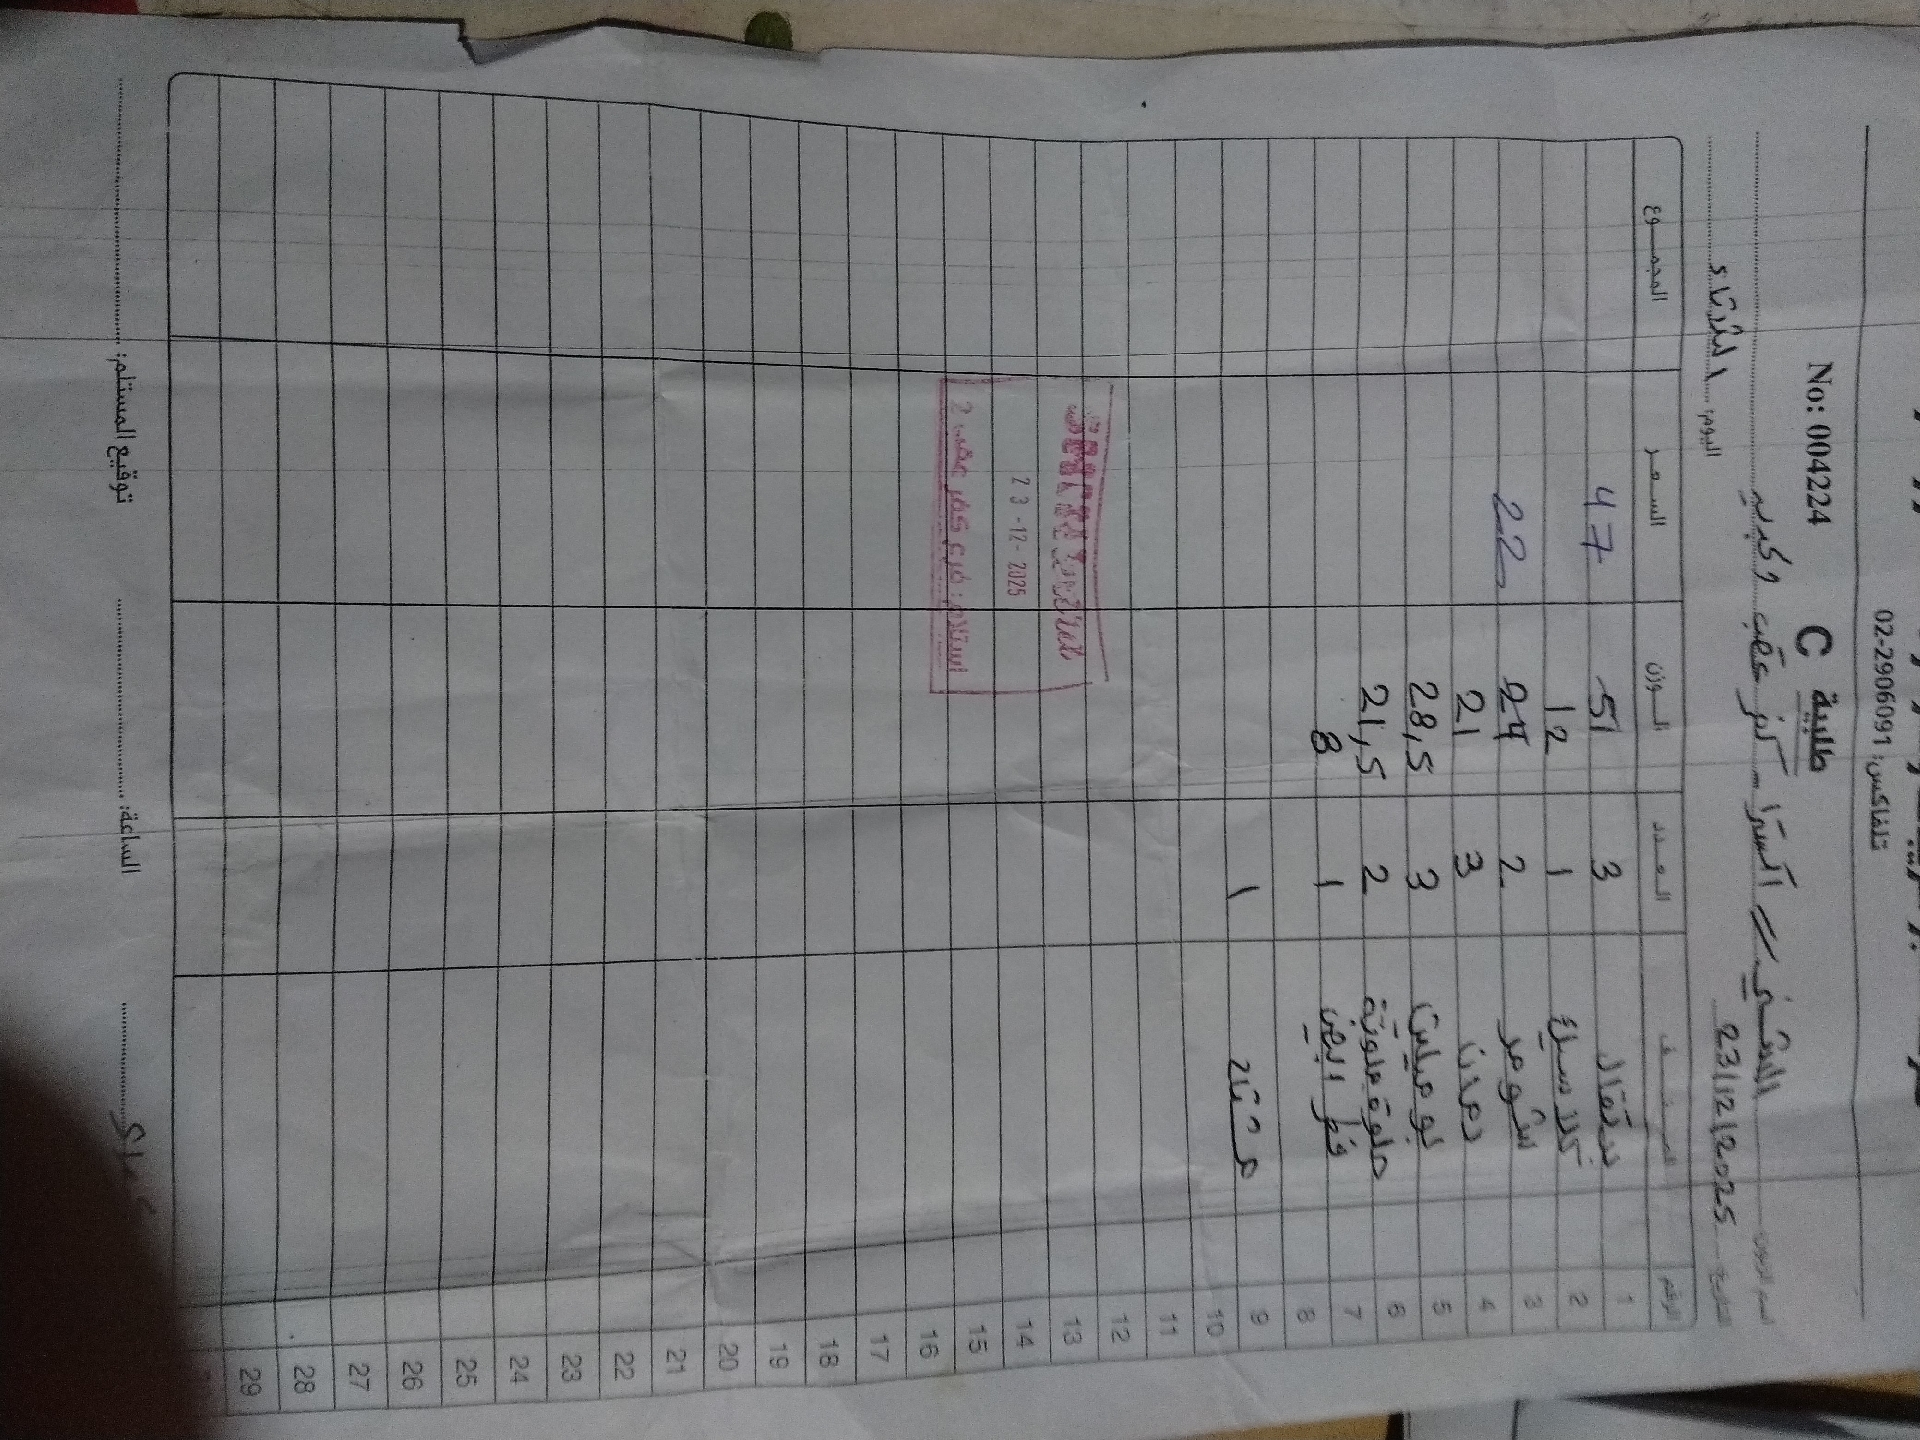 تلفاكس: 02-2906091
No: 004224 طلبية C
اسم الزبون: الشني // اكسترا - كفر عقب وكبير
التاريخ: 23/12/2025 اليوم: الثلاثاء
الرقم الصنف العدد الوزن السعر المجموع
1 برتقال 3 51 47
2 كلاسيك 1 12
3 شومر 2 24 22
4 3 21
5 بوميلي 3 28,5
6 حلوة ملونة 2 21,5
7 فطر ابيض 1 8
8
9 1
10
11
12
13
14 23-12-2025
15
16 استلام: فرع كفر عقب 2
17
18
19
20
21
22
23
24
25
26
27
28
29
الساعة: توقيع المستلم: